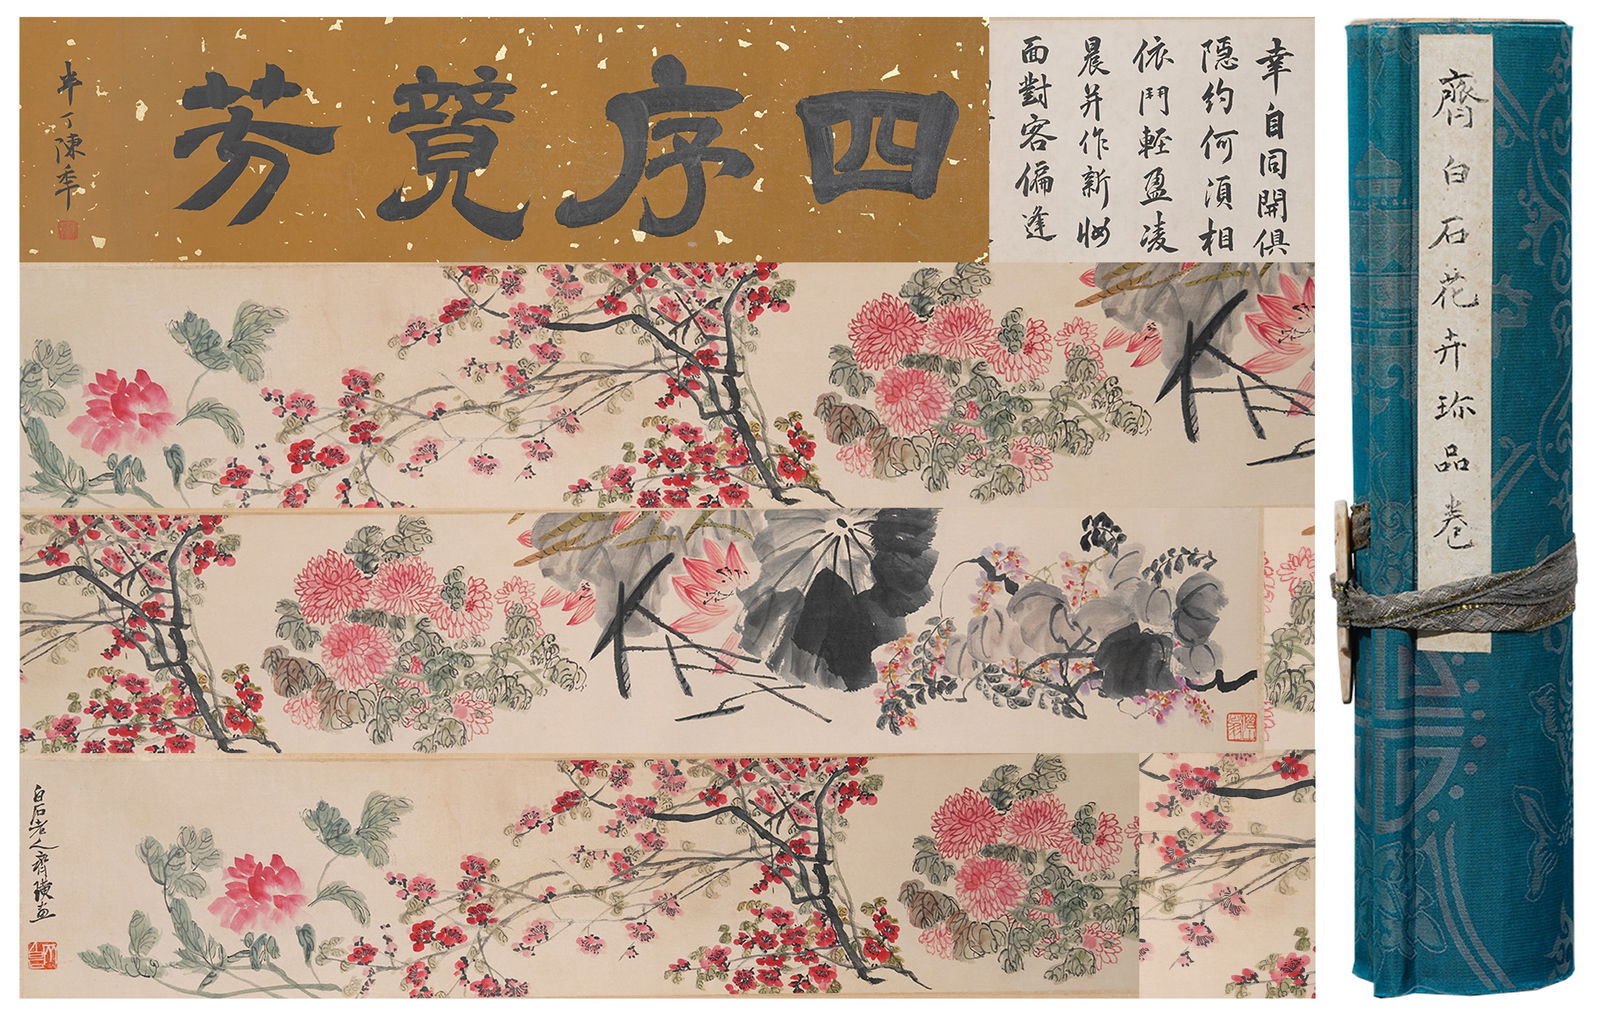 四序覽芳
半丁陳年
幸自同開俱
隱約何須相
依鬥輕盈凌
晨并作新妝
面對客偏逢
白石老人齊璜畫
齊白石花卉珍品卷